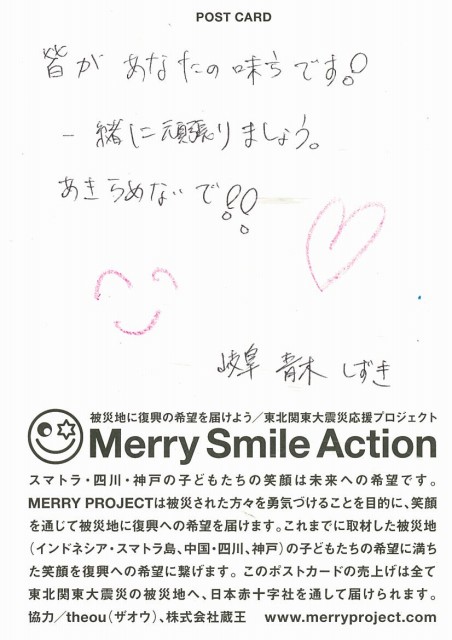 POST CARD
皆が あなたの 味方です!!
一緒に頑張りましょう。
あきらめないで!!
岐阜 青木 しずき
被災地に復興の希望を届けよう／東北関東大震災応援プロジェクト
Merry Smile Action
スマトラ・四川・神戸の子どもたちの笑顔は未来への希望です。
MERRY PROJECTは被災された方々を勇気づけることを目的に、笑顔
を通じて被災地に復興への希望を届けます。これまでに取材した被災地
（インドネシア・スマトラ島、中国・四川、神戸）の子どもたちの希望に満ち
た笑顔を復興への希望に繋げます。このポストカードの売上げは全て
東北関東大震災の被災地へ、日本赤十字社を通して届けられます。
協力／theou（ザオウ）、株式会社蔵王 www.merryproject.com